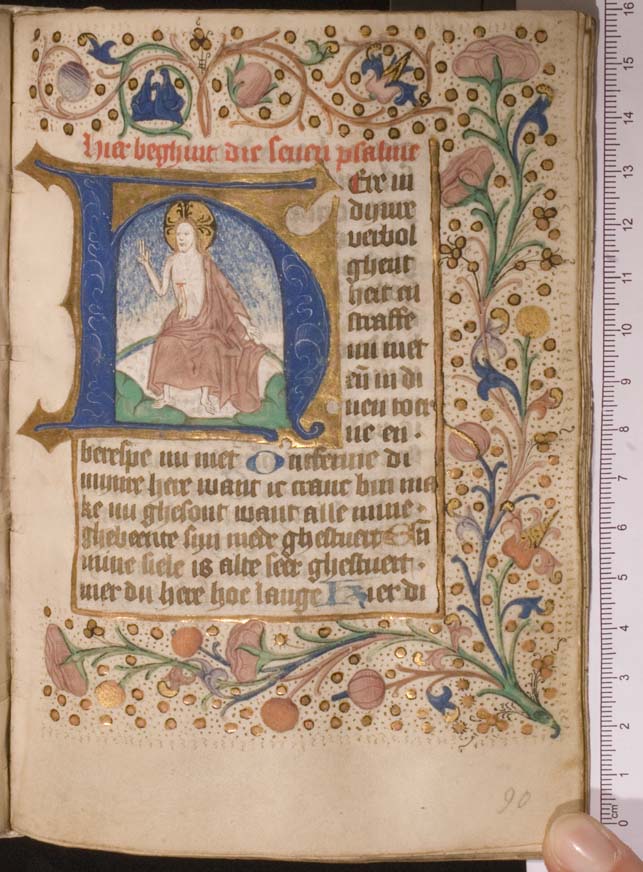 hier beghint die seuen psalme
H Ere in
dijnre
verbol
ghent
heit en
straffe
mi niet
en̄ in di
nen torr
ne en
berespe mi niet Ontferme di
mijnre here want ic cranc bin ma
ke mi ghesont want alle mine
ghebeente sijn mede ghestuert En̄
mine siele is alte seer ghestuert
mer du here hoe lange Kier di
90
cm 0 1 2 3 4 5 6 7 8 9 10 11 12 13 14 15 16